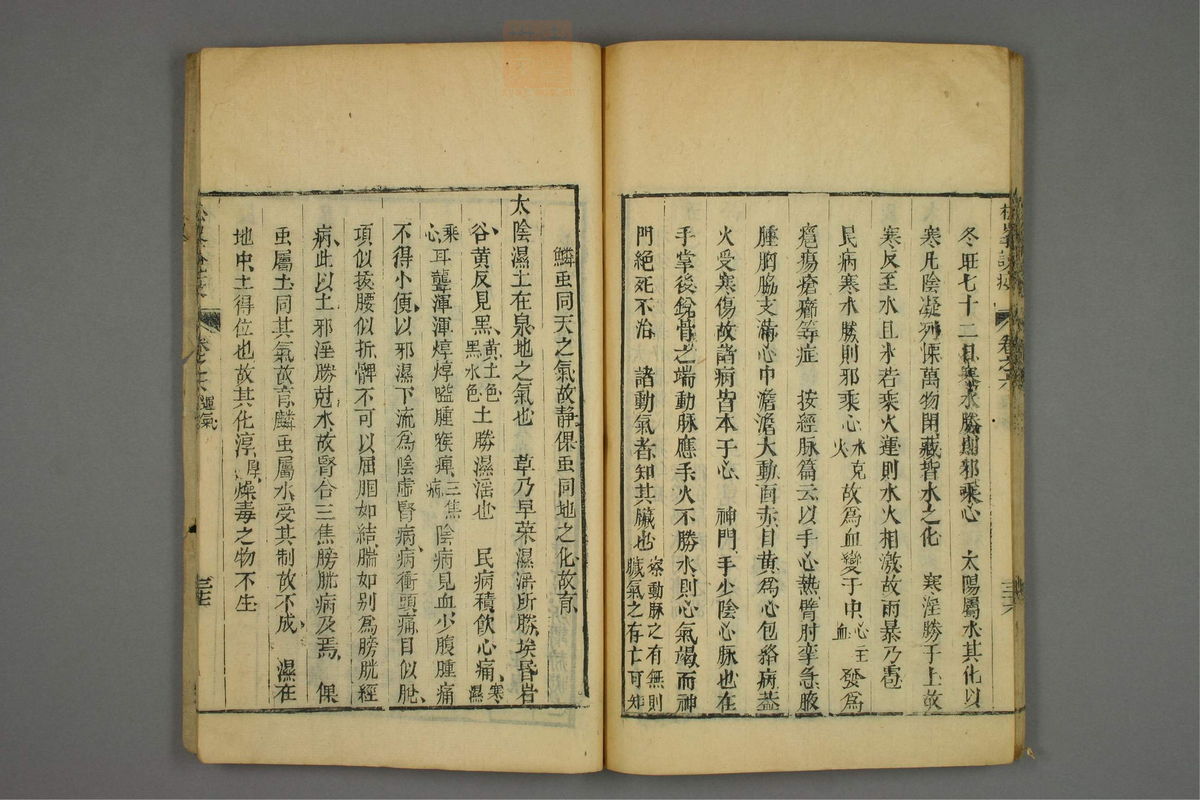 冬旺七十二日寒水勝則邪乘心　太陽屬水其化以
寒凡陰凝列慄萬物閉藏皆水之化　寒淫勝于上故
寒反至水且氷若乘火運則水火相激故雨暴乃雹
民病寒水勝則邪乘心水克火故爲血變于中心主血發爲
癰瘍瘡癤等症　按經脉篇云以手心熱臂肘攣急腋
腫胸脇支滿心中澹澹大動面赤目黄爲心包絡病蓋
火受寒傷故諸病皆本于心　神門手少陰心脉也在
手掌後銳骨之端動脉應手火不勝水則心氣竭而神
門絕死不治　諸動氣者知其臟也察動脉之有無則臟氣之存亡可知
鱗虫同天之氣故静倮虫同地之化故育
太陰濕土在泉地之氣也　草乃早荣濕滛所勝埃昏岩
谷黄反見黑黄土色黑水色土勝濕滛也　民病積飲心痛寒濕
乘心耳聾渾渾焞焞嗌腫喉痺三焦病陰病見血少腹腫痛
不得小便以邪濕下流爲陰虚腎病病衝頭痛目似脫
項似拔腰似折髀不可以屈膕如結腨如别爲膀胱經
病此以土邪淫勝尅水故腎合三焦膀胱病及焉　倮
虫屬土同其氣故育鱗虫屬水受其制故不成　濕在
地中土得位也故其化淳厚燥毒之物不生
卷之六
運氣
三七
卷之六
三六